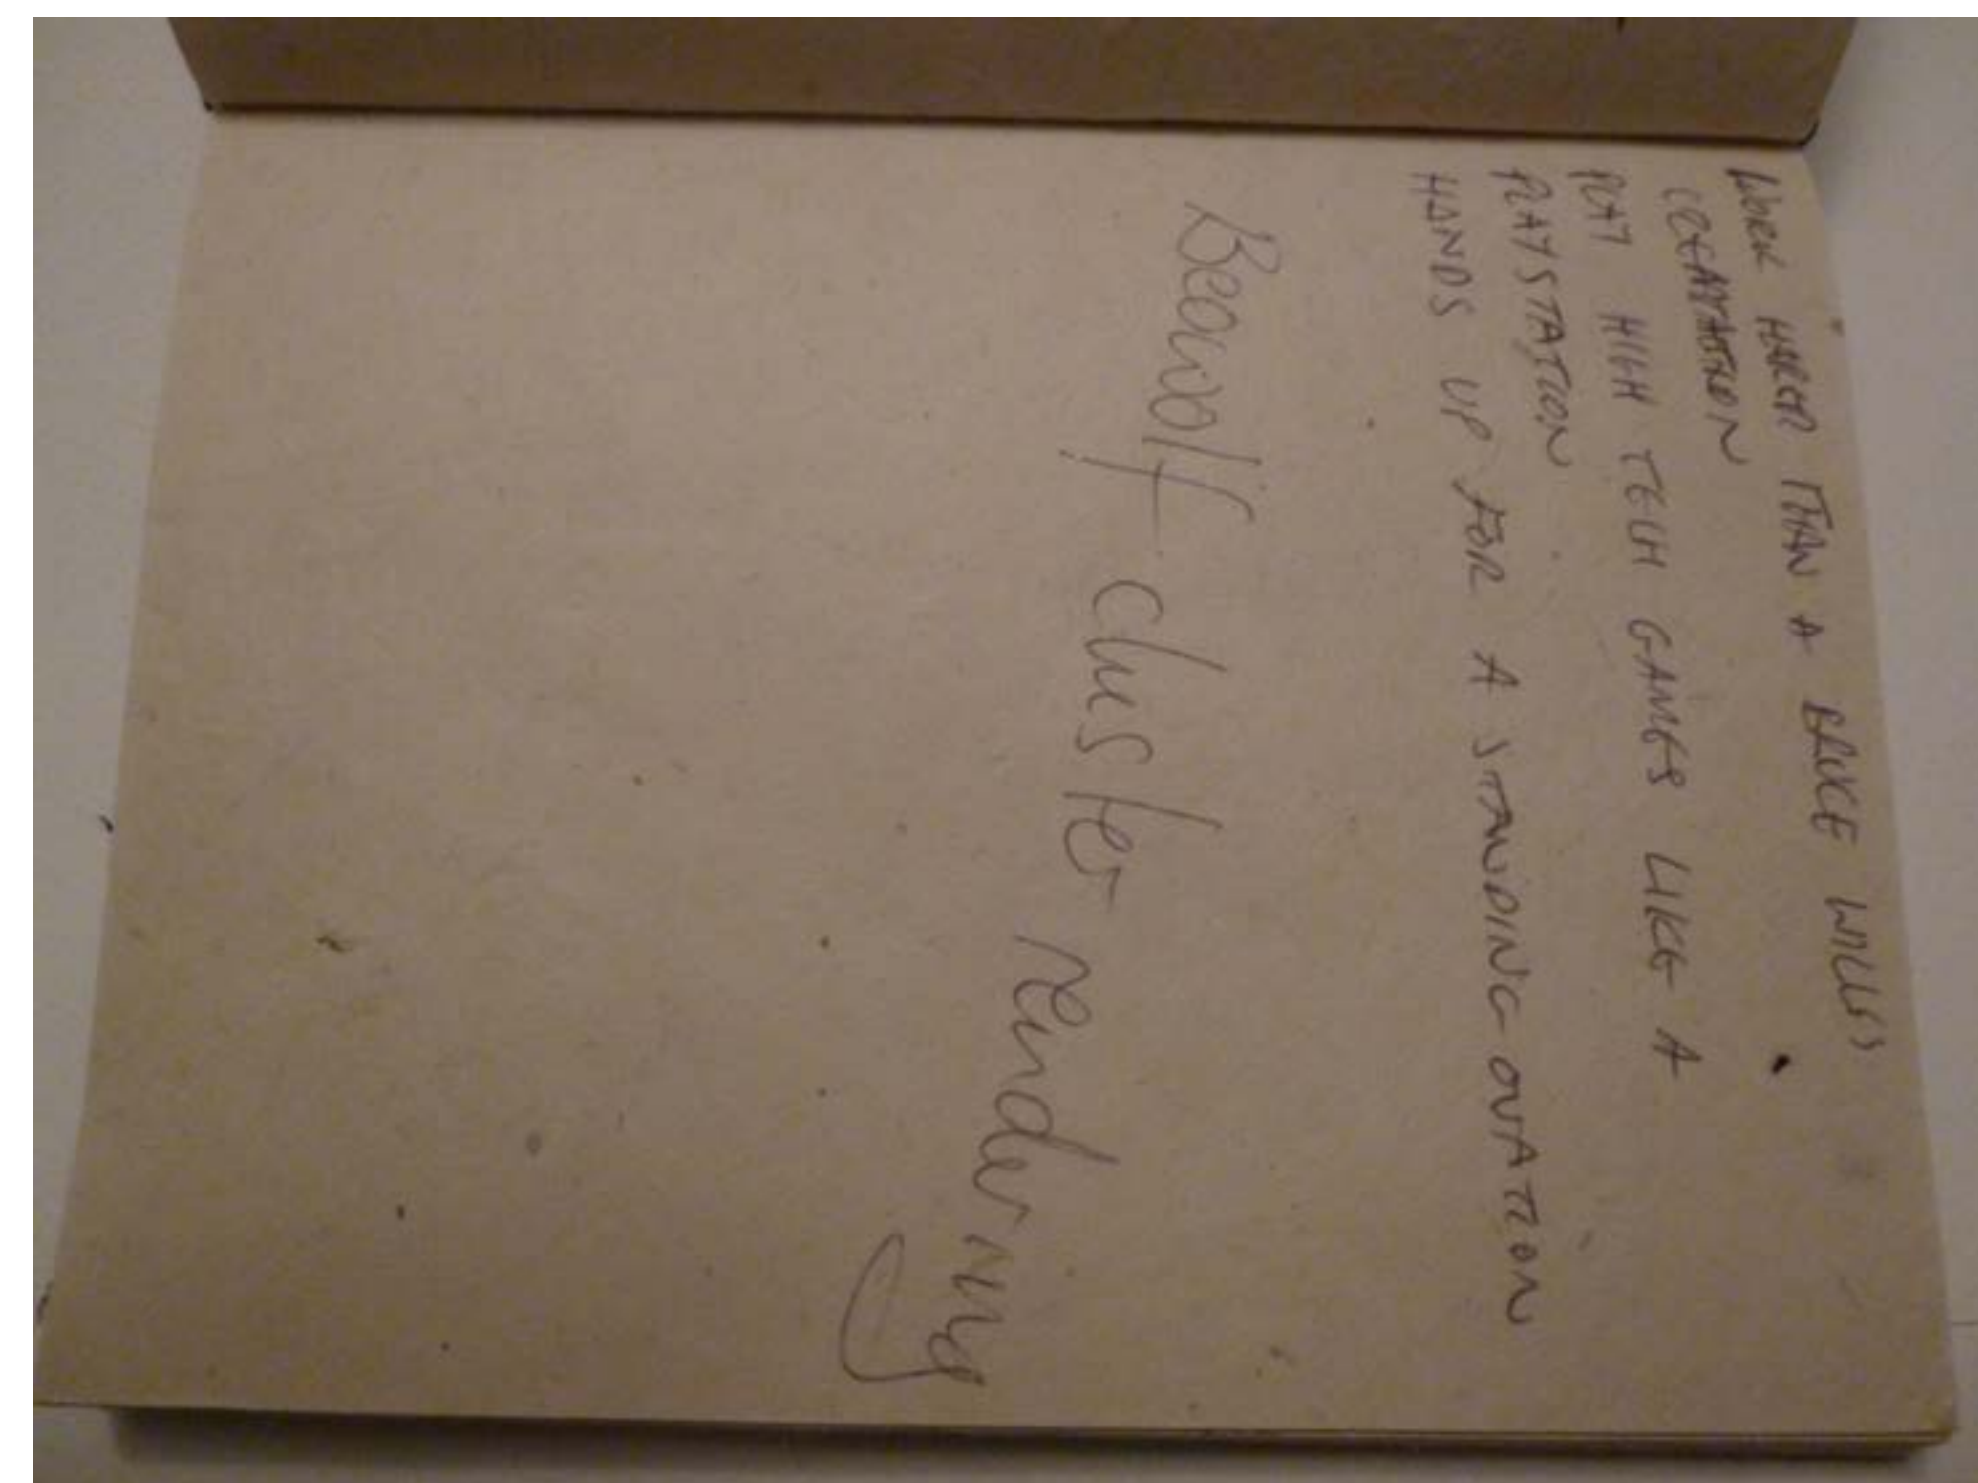 WORK HARDER THAN A BRUCE WILLIS
PLAY HIGH TECH GAMES LIKE A
PLAYSTATION
HANDS UP FOR A STANDING OVATION
Beowolf cluster rendering